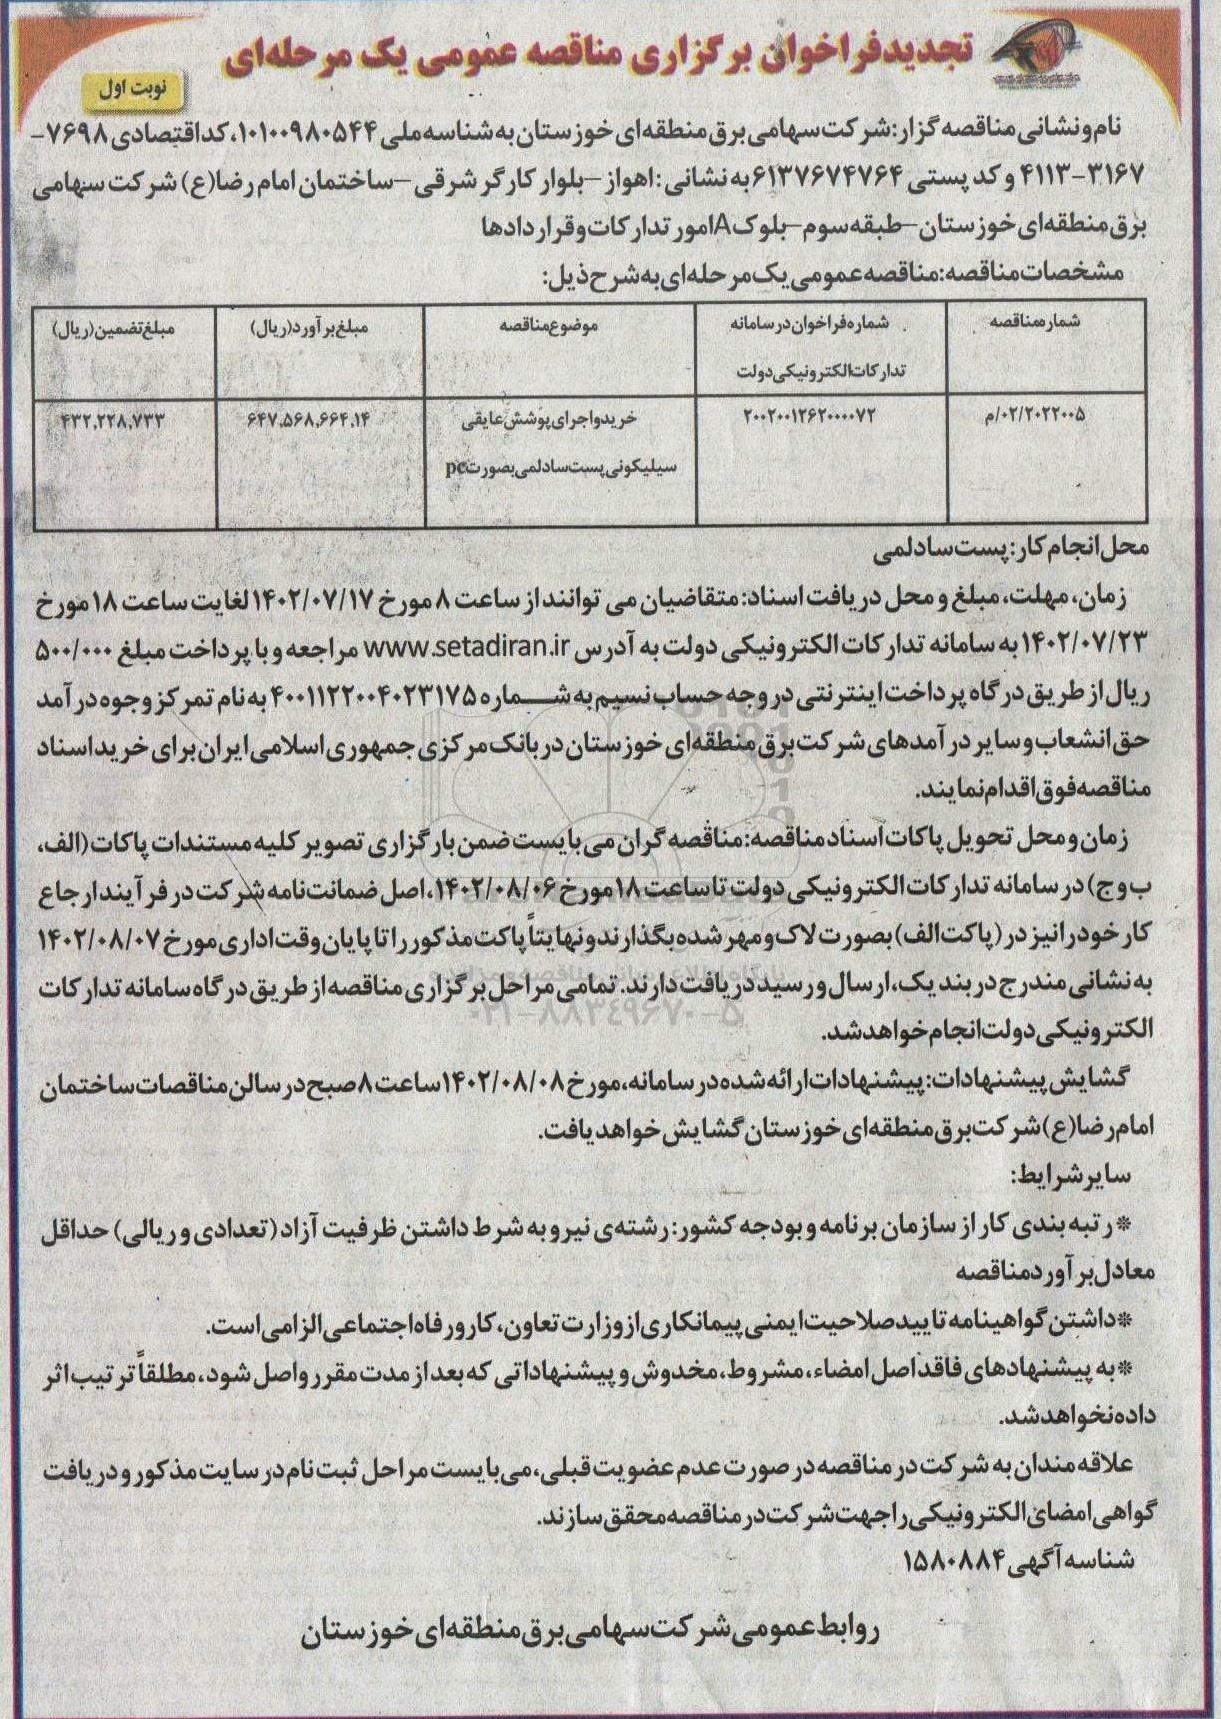 تجدیدفراخوان برگزاری مناقصه عمومی یک مرحله‌ای
نوبت اول
نام ونشانی مناقصه گزار: شرکت سهامی برق منطقه‌ای خوزستان به شناسه ملی ۱۰۱۰۰۹۸۰۵۴۴، کداقتصادی ۷۶۹۸-
۴۱۱۳-۳۱۶۷ و کد پستی ۶۱۳۷۶۷۴۷۶۴ به نشانی: اهواز – بلوار کارگر شرقی – ساختمان امام رضا(ع) شرکت سهامی
برق منطقه‌ای خوزستان – طبقه سوم – بلوک A امور تدارکات وقراردادها
مشخصات مناقصه: مناقصه عمومی یک مرحله‌ای به شرح ذیل:
شماره مناقصه | شماره فراخوان در سامانه | موضوع مناقصه | مبلغ برآورد(ریال) | مبلغ تضمین(ریال)
تدارکات الکترونیکی دولت
۰۲/۲۰۲۲۰۰۵/م | ۲۰۰۲۰۰۱۲۶۲۰۰۰۰۷۲ | خریدواجرای پوشش عایقی | ۶۴۷,۵۶۸,۶۶۴,۱۴ | ۴۳۲,۲۲۸,۷۳۳
سیلیکونی پست سادلمی بصورت pc
محل انجام کار: پست سادلمی
زمان، مهلت، مبلغ و محل دریافت اسناد: متقاضیان می توانند از ساعت ۸ مورخ ۱۴۰۲/۰۷/۱۷ لغایت ساعت ۱۸ مورخ
۱۴۰۲/۰۷/۲۳ به سامانه تدارکات الکترونیکی دولت به آدرس www.setadiran.ir مراجعه و با پرداخت مبلغ ۵۰۰/۰۰۰
ریال از طریق درگاه پرداخت اینترنتی در وجه حساب نسیم به شماره ۴۰۰۱۱۲۲۰۰۴۰۲۳۱۷۵ به نام تمرکز وجوه درآمد
حق انشعاب و سایر درآمدهای شرکت برق منطقه‌ای خوزستان در بانک مرکزی جمهوری اسلامی ایران برای خرید اسناد
مناقصه فوق اقدام نمایند.
زمان و محل تحویل پاکات اسناد مناقصه: مناقصه گران می بایست ضمن بارگزاری تصویر کلیه مستندات پاکات (الف،
ب و ج) در سامانه تدارکات الکترونیکی دولت تا ساعت ۱۸ مورخ ۱۴۰۲/۰۸/۰۶، اصل ضمانت نامه شرکت در فرآیند ارجاع
کار خود را نیز در (پاکت الف) بصورت لاک و مهر شده بگذارند و نهایتاً پاکت مذکور را تا پایان وقت اداری مورخ ۱۴۰۲/۰۸/۰۷
به نشانی مندرج در بند یک، ارسال و رسید دریافت دارند. تمامی مراحل برگزاری مناقصه از طریق درگاه سامانه تدارکات
الکترونیکی دولت انجام خواهد شد.
گشایش پیشنهادات: پیشنهادات ارائه شده در سامانه، مورخ ۱۴۰۲/۰۸/۰۸ ساعت ۸ صبح در سالن مناقصات ساختمان
امام رضا(ع) شرکت برق منطقه‌ای خوزستان گشایش خواهد یافت.
سایر شرایط:
*رتبه بندی کار از سازمان برنامه و بودجه کشور: رشته‌ی نیرو به شرط داشتن ظرفیت آزاد (تعدادی و ریالی) حداقل
معادل برآورد مناقصه
*داشتن گواهینامه تایید صلاحیت ایمنی پیمانکاری از وزارت تعاون، کار و رفاه اجتماعی الزامی است.
*به پیشنهادهای فاقد اصل امضاء، مشروط، مخدوش و پیشنهاداتی که بعد از مدت مقرر واصل شود، مطلقاً ترتیب اثر
داده نخواهد شد.
علاقه مندان به شرکت در مناقصه در صورت عدم عضویت قبلی، می بایست مراحل ثبت نام در سایت مذکور و دریافت
گواهی امضای الکترونیکی را جهت شرکت در مناقصه محقق سازند.
شناسه آگهی ۱۵۸۰۸۸۴
روابط عمومی شرکت سهامی برق منطقه‌ای خوزستان
پایگاه اطلاع رسانی مناقصه و مزایده
۰۲۱-۸۸۳۴۹۶۷۰-۵